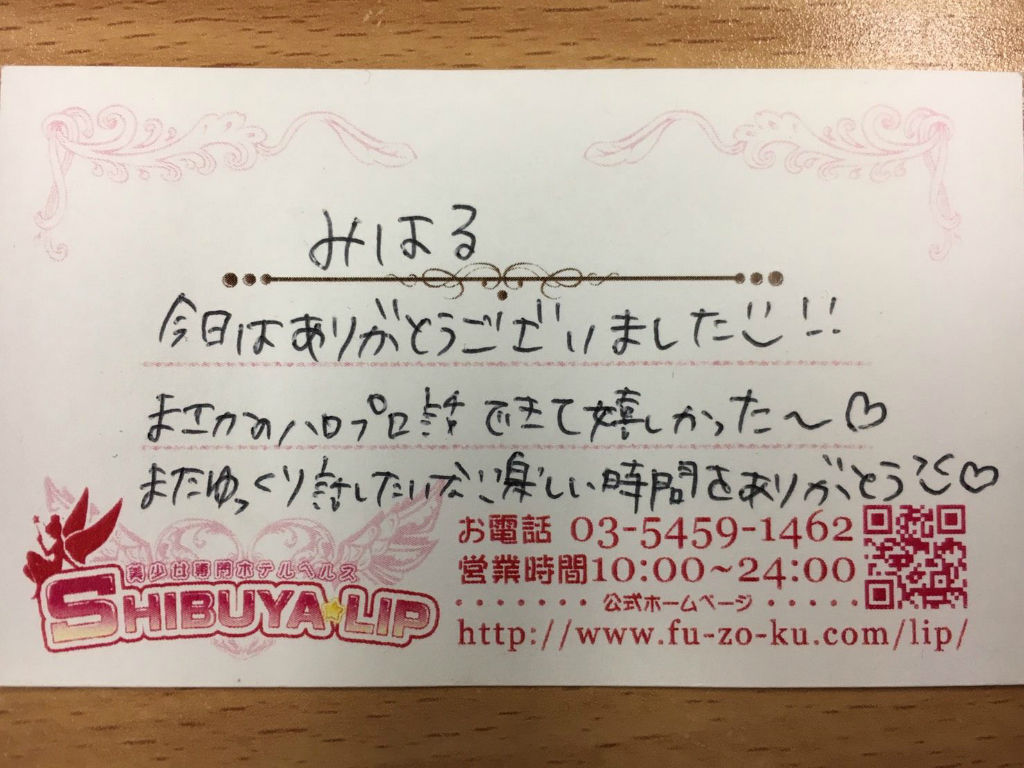 みはる
今日はありがとうございました!!
まさかのハロプロ話できて嬉しかった〜♡
またゆっくり話したいな 楽しい時間をありがとう♡
お電話 03-5459-1462
営業時間10:00~24:00
公式ホームページ
http://www.fu-zo-ku.com/lip/
美少女専門ホテルヘルス
SHIBUYA★LIP